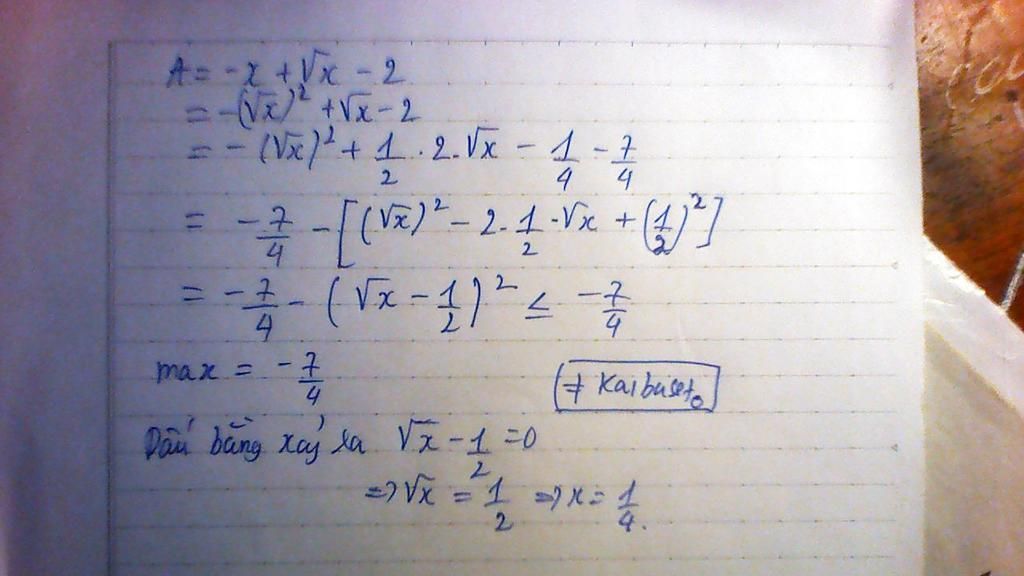 A = -x + √x - 2
= -(√x)² + √x - 2
= - (√x)² + 1/2 . 2 . √x - 1/4 - 7/4
= -7/4 - [(√x)² - 2 . 1/2 . √x + (1/2)²]
= -7/4 - (√x - 1/2)² ≤ -7/4
max = -7/4
Dấu bằng xảy ra √x - 1/2 = 0
=> √x = 1/2 => x = 1/4.